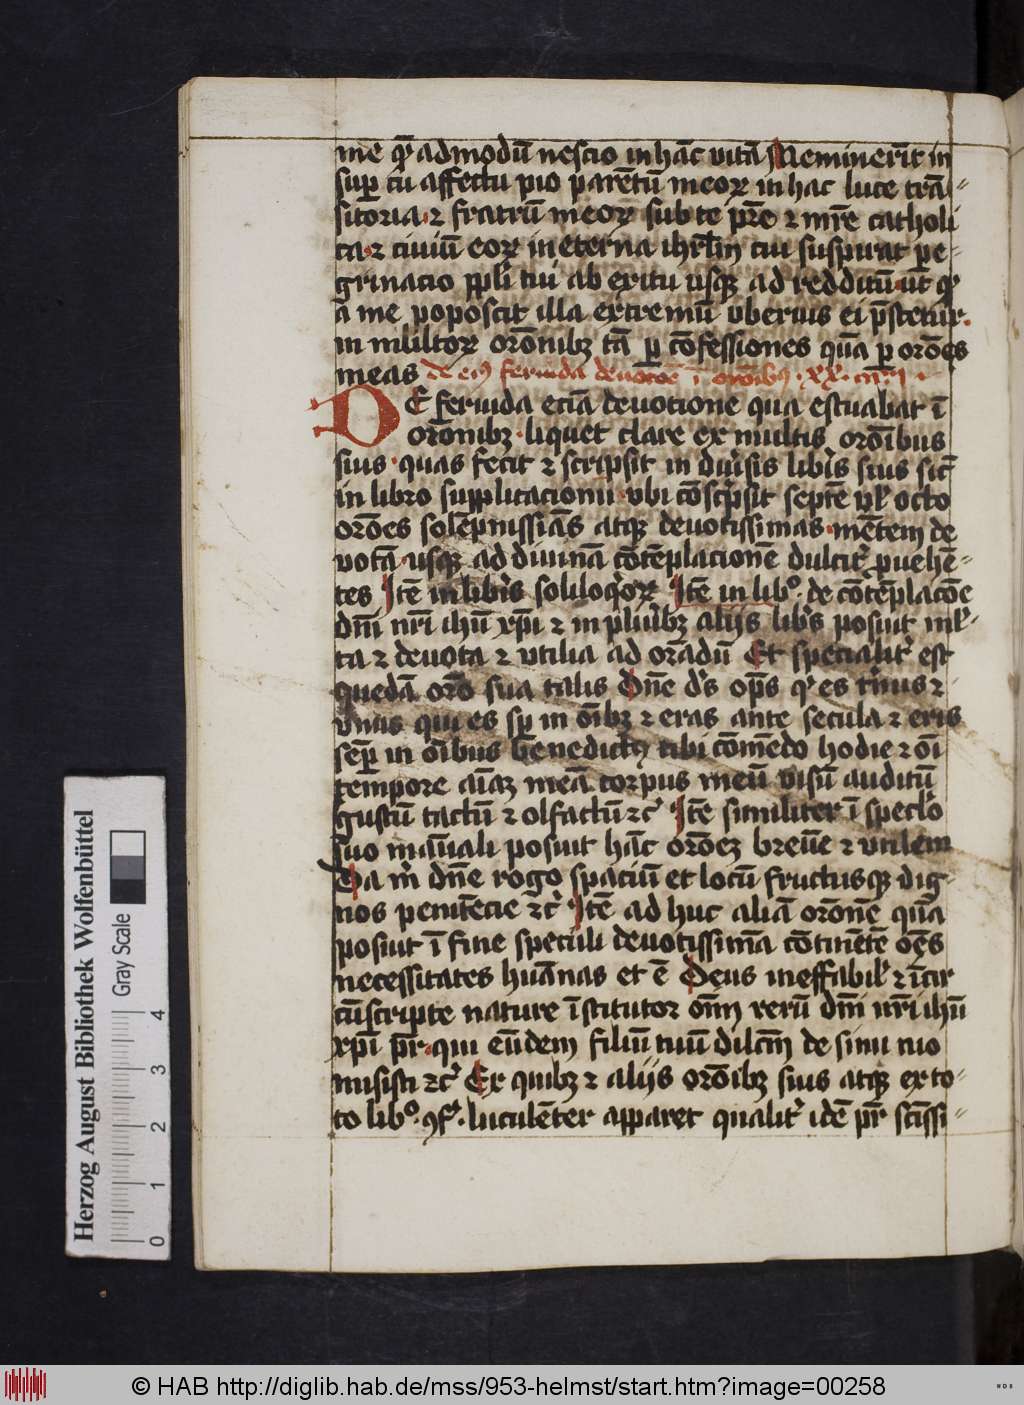 me qͤadmodū nescio in hāc vitā Meminerīt in
sup̱ cū affectu pio parētū meoꝝ in hac luce trā⸗
sitoria ⁊ fratrū meoꝝ sub te p̄re ⁊ mr̄e catholi
ca ⁊ ciuiū eoꝝ in eterna ihrl̄m cui suspirat ꝑe⸗
grinacio pp̄li tui ab exitu usqꝫ ad redditū ut qͩ
a me poposcit illa extremū vberius ei p̄stetur
in mlı̄toꝝ orōnibꝫ tā ꝑ cōfessiones quā ꝑ orōes
meas de eiꝰ feruida deuotōe ī orōnibꝰ · xx · iiii
DE feruida eciā deuotione qua estuabat ī
orōnibꝫ · liquet clare ex multis orōibus
suis · quas fecit ⁊ scripsit in diu̾sis libris suis sic̄
in libro supplicacionū vbi cōsc̾psit septē vl̾ octo
orōes solēpnissiās atqꝫ deuotissimas · mētem de
votā · usqꝫ ad diuinā cōtēplacionē dulcit̾ ꝓuehē⸗
tes Itē in libris soliloq̾oꝝ Itē in libº · de cōtēplacōe
dn̄i nr̄i ihū xp̄i ⁊ in plurībꝫ aliis libris posuit ml̾⸗
ta ⁊ deuota ⁊ vtilia ad orādū Et specialit̾ est
quedā orō sua talis Dn̄e ds̄ op̄s q̾ es trinus ⁊
vnus qui es sp̱ in oībꝫ ⁊ eras ante secula ⁊ eris
sep̱ in oībus b̄enedictꝰ tibi cōmēdo hodie ⁊ oī
tempore aīaꝫ meā corpus meū visū auditū
gustū tactū ⁊ olfactū ⁊c̾ Itē similiter ī specl̾o
suo māuali posuit hāc orōeꝫ breuē ⁊ vtilem
Da m̾ dn̄e rogo spaciū et locū fructusqꝫ dig
nos penitēcie ⁊c̾ Itē ad huc aliā orōnē quā
posuit ī fine speculi deuotissimā cōtinētē oēs
necessitates huānas et ē Deus ineffabil̾ ⁊ īcir
cūscripte nature īstitutor oīm rerū dn̄i nr̄i ihū
xp̄i pr̄ · qui eūdem filiū tuū dilcm̄ de sinu tuo
misisti ⁊c̾ Ex quibꝫ ⁊ aliis orōibꝫ suis atqꝫ ex to⸗
to libº · ꝯf · luculēter apparet qualit̾ idē pr̄ scīssi⸗
Herzog August Bibliothek Wolfenbüttel
Gray Scale
0 1 2 3 4
© HAB http://diglib.hab.de/mss/953-helmst/start.htm?image=00258